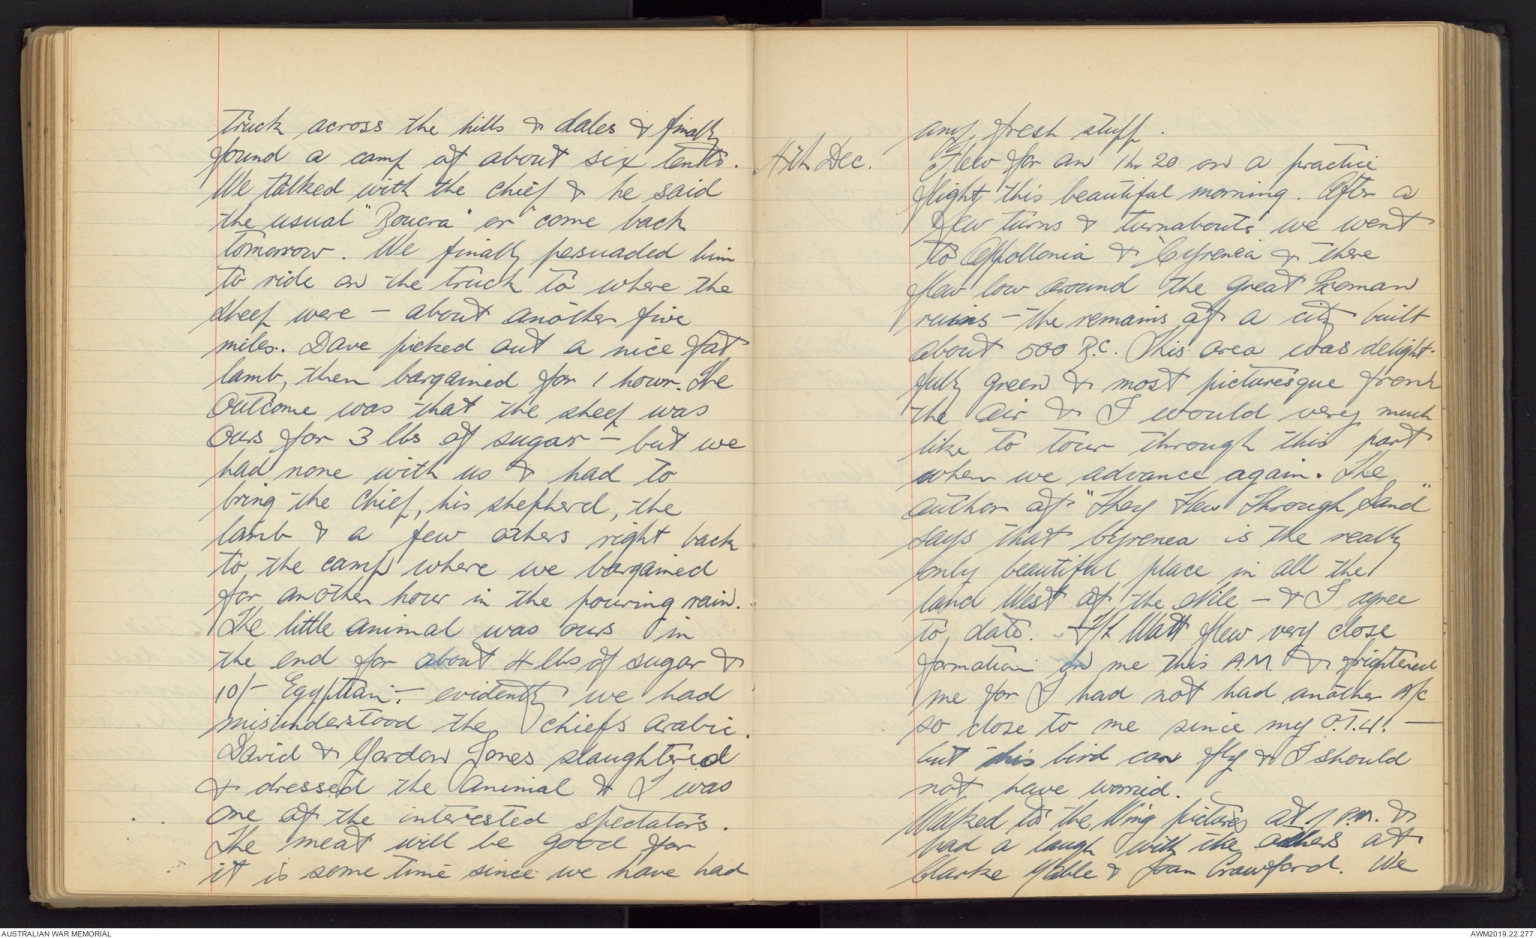 truck across the hills & dales & finally
found a camp of about six tents.
We talked with the chief & he said
the usual "Boucra" or "come back
tomorrow. We finally persuaded him
to ride on the truck to where the
sheep were - about another five
miles. Dave picked out a nice fat
lamb, then bargained for 1 hour. The
outcome was that the sheep was
ours for 3 lbs of sugar - but we
had none with us & had to
bring the chief, his shepherd, the
lamb & a few others right back
to the camp where we bargained
for another hour in the pouring rain.
The little animal was ours in
the end for about 4 lbs of sugar &
10/- Egyptian - evidently we had
misunderstood the chiefs arabic.
David & Gordon Jones slaughtered
& dressed the animal & I was
one of the interested spectators.
The meat will be good for
it is some time since we have had
any fresh stuff.
Dec. Flew for an 1 hr 20 on a practice
flight this beautiful morning. After a
few turns & turnabouts we went
to Appollonia & Cyrenea & there
flew low around the great Roman
ruins - the remains of a city built
about 500 B.C. This area was delight-
fully green & most picturesque from
the air & I would very much
like to tour through this part
when we advance again. The
author of "They Flew Through Sand"
says that Cyrenea is the really
only beautiful place in all the
land West of the Nile - & I agree
to date. F/Lt Watt flew very close
formation on me this A.M. & frightened
me for I had not had another A/c
so close to me since my O.T.U! -
but this bird can fly & I should
not have worried.
Walked to the Wing pictures at P.M. &
had a laugh with the others at
Clarke Gable & Joan Crawford. We
AUSTRALIAN WAR MEMORIAL
AWM2019.22.277